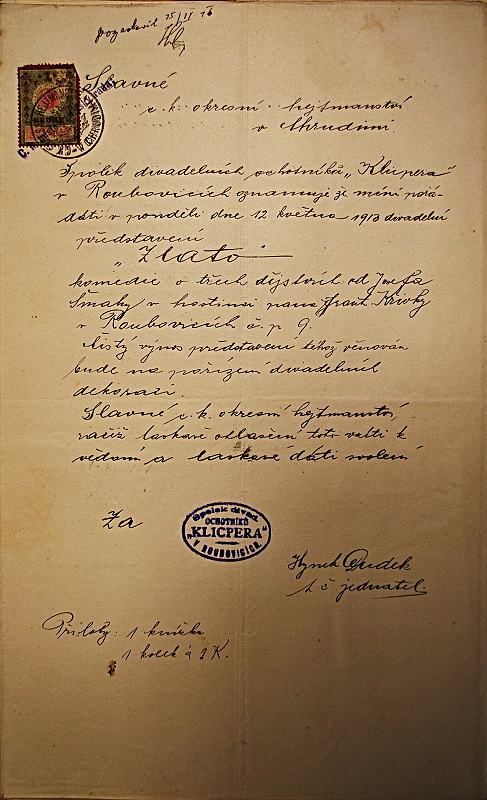 Slavné
c. k. okresní hejtmanství
v Chrudimi
Spolek divadelních ochotníků „Klicpera"
v Roubovicích oznamuje že míní pořá-
dati v pondělí dne 12 května 1913 divadelní
představení
„Zlato"
komedie o třech dějstvích od Josefa
Šmahy v hostinci pana Frant. Křivky
v Roubovicích č. p 9.
Čistý výnos představení téhož věnován
bude na pořízení divadelních
dekorací.
Slavné c. k. okresní hejtmanství,
račiž laskavě ohlášení toto vzíti k
vědomí a laskavě dáti svolení
Za
Spolek divad.
OCHOTNÍKŮ
„KLICPERA"
V ROUBOVICÍCH.
Hynek Dudek
t. č. jednatel.
Přílohy: 1 knížka
1 kolek à 2 K.